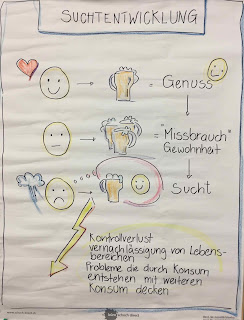 SUCHTENTWICKLUNG
= Genuss
= "Missbrauch"
Gewohnheit
Sucht
Kontrollverlust
vernachlässigung von Lebens-
bereichen
Probleme die durch Konsum
entstehen mit weiteren
Konsum decken